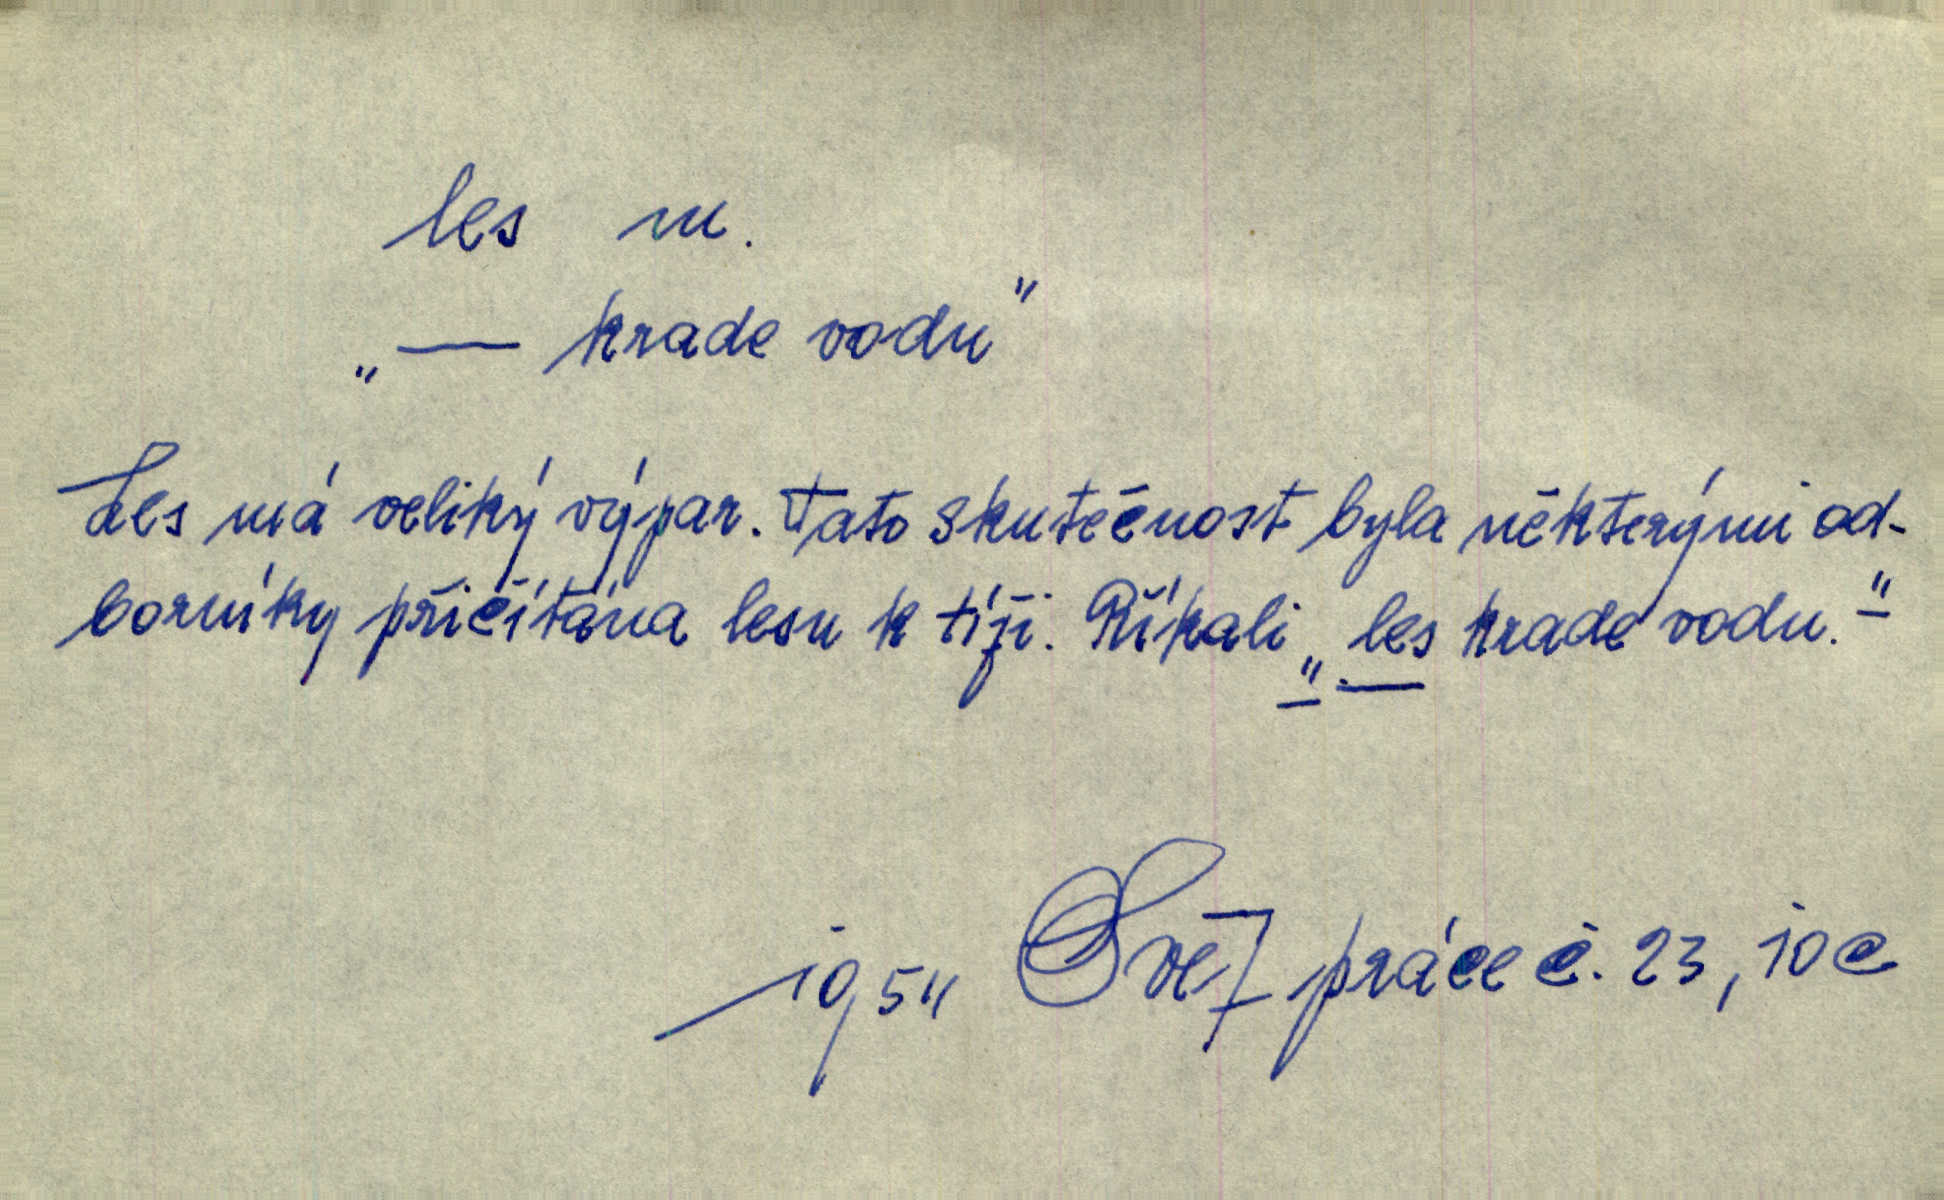 les m.
„— krade vodu"
Les má veliký výpar. Tato skutečnost byla některými od-
borníky přičítána lesu k tíži. Říkali „les krade vodu."
1954 Svět práce č. 23, 10c